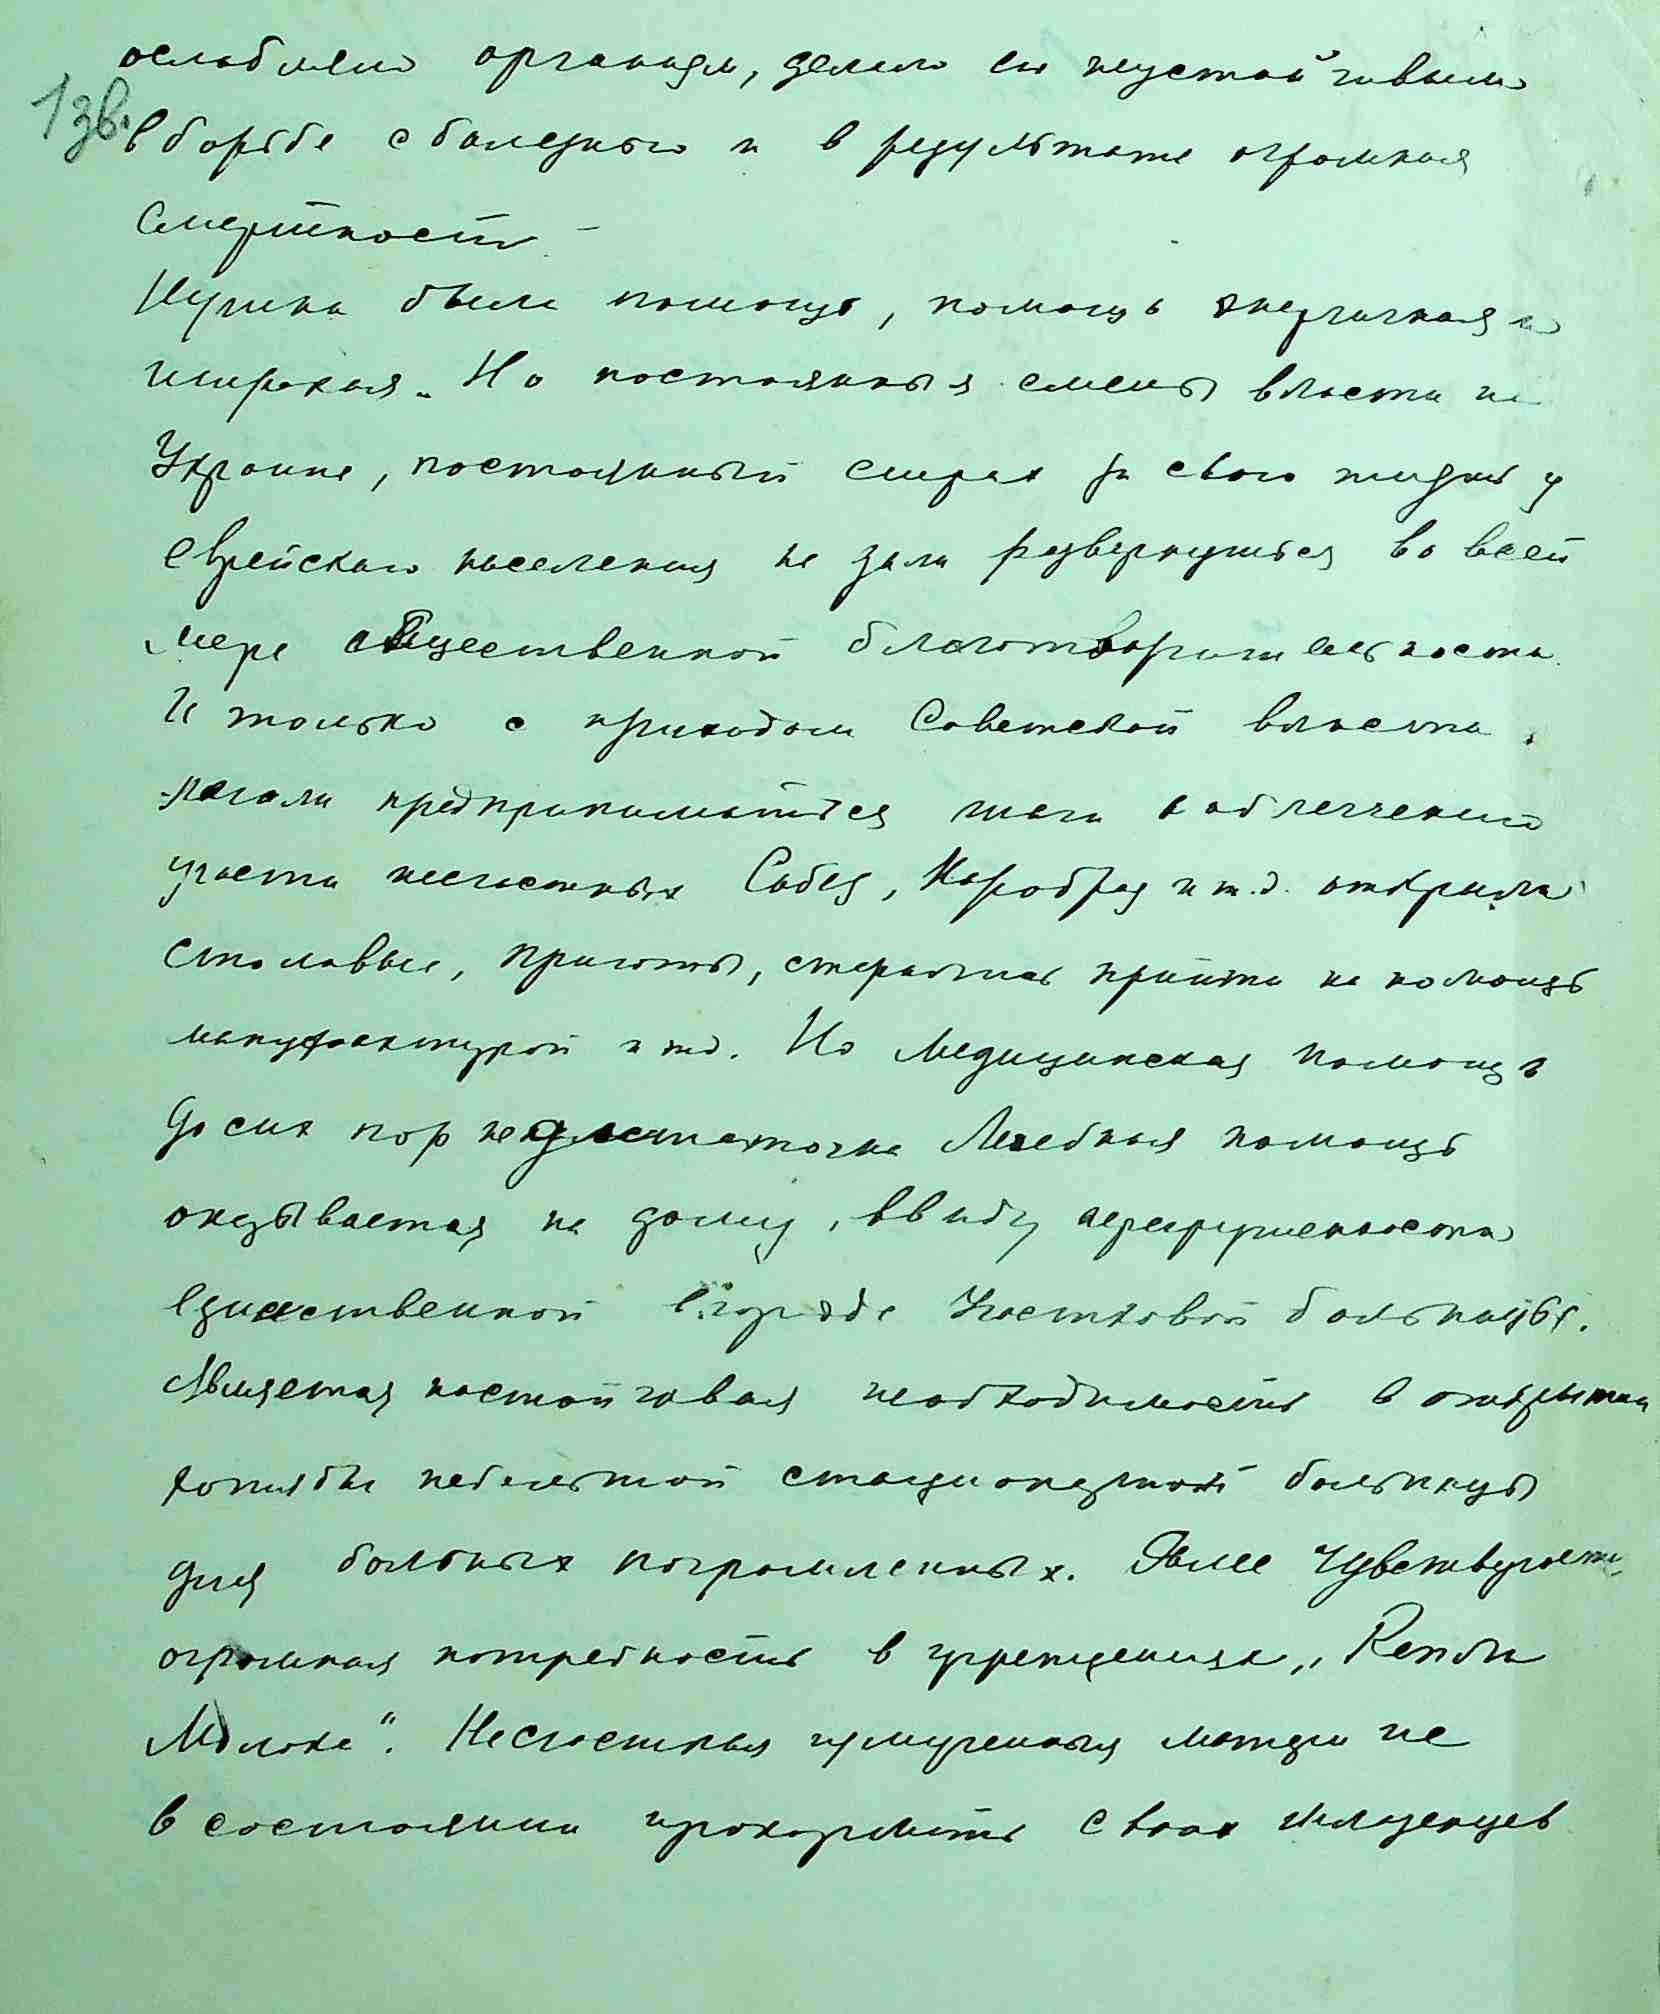 ослабляло организм, делало его неустойчивым
1 зв.
в борьбе с болезнью и в результате огромная
смертность.
Нужна была помощь, помощь энергичная и
широкая. Но постоянныя смены власти на
Украине, постоянный страх за свою жизнь у
еврейскаго населения не дали развернуться во всей
мере общественной благотворительности.
И только с приходом Советской власти
начали предприниматься шаги к облегчению
участи несчастных Собез, Наробраз и т.д. открыли
столовые, приюты, старались прийти на помощь
мануфактурой и тд. Но медицинская помощь
до сих пор недостаточна Лечебная помощь
оказывается на дому, ввиду перегруженности
единственной в городе Участковой больницы.
Является настойчивая необходимость в открытии
хотя бы небольшой стационарной больницы
для больных погромленных. Далее чувствуется
огромная потребность в учреждениях „Капли
Молока". Несчастныя измученныя матери не
в состоянии прокормить своих младенцев